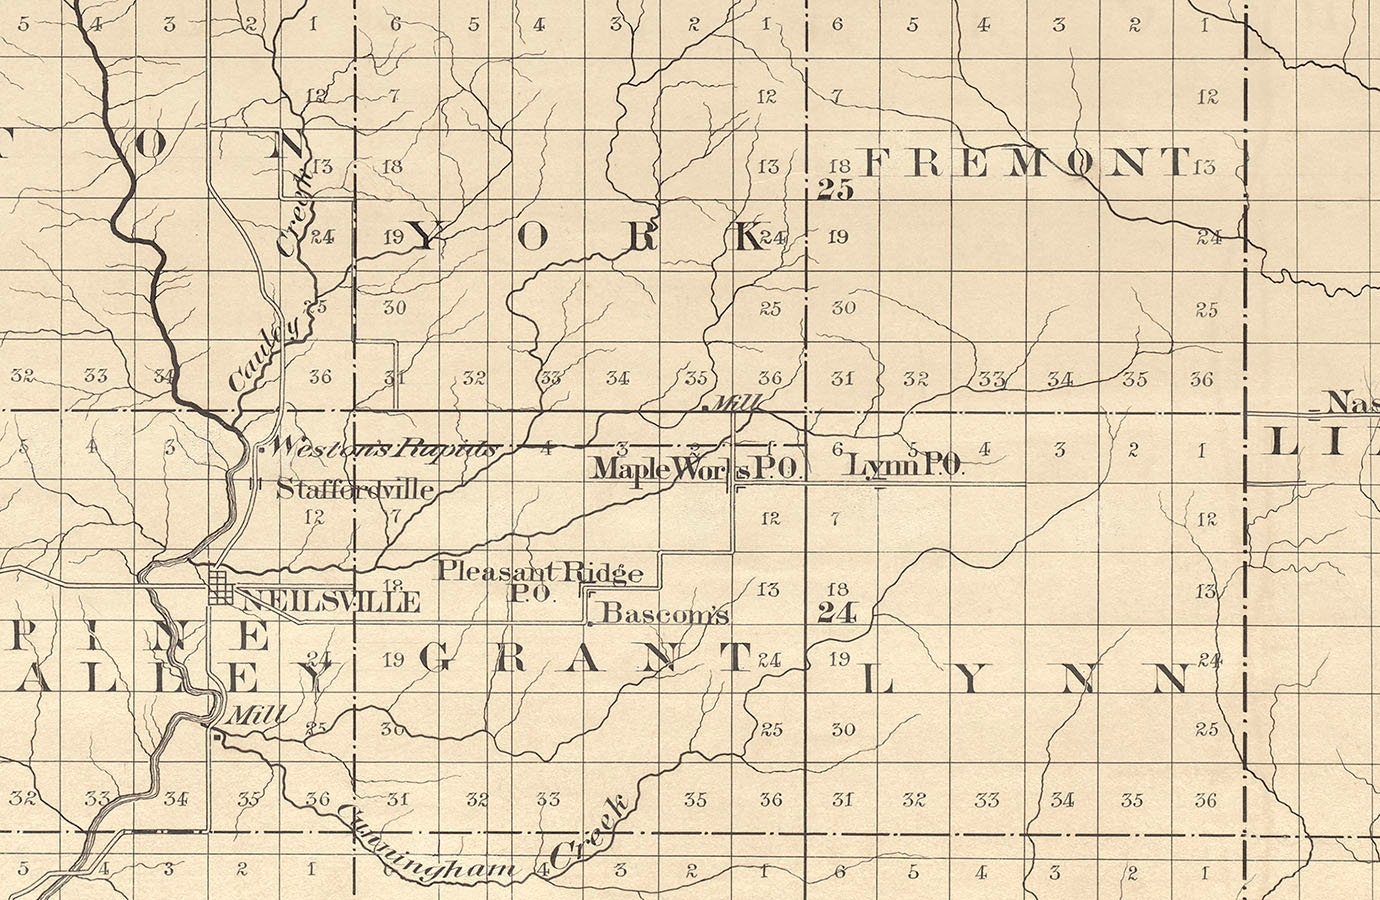 5 4 3 2 1 6 5 4 3 2 1 6 5 4 3 2 1
12 7 12 7 12
T O N 13 18 13 18 FREMONT 13
25
Creek 24 19 YORK 24 19 24
25 30 25 30 25
Cauley
32 33 34 36 31 32 33 34 35 36 31 32 33 34 35 36
Mill
Nas
5 4 3 Weston's Rapids 4 3 2 1 6 5 4 3 2 1 LIA
Maple Works P.O. Lynn P.O.
11 Staffordville
12 7 12 7 12
Pleasant Ridge
P.O.
18 13 18 13
NEILSVILLE Bascom's 24
PINE
VALLEY 24 19 GRANT 24 19 LYNN 24
Mill
25 30 25 30 25
32 33 34 35 36 31 32 33 35 36 31 32 33 34 35 36
Cunningham Creek
5 4 3 2 1 6 4 3 2 1 6 5 4 3 2 1